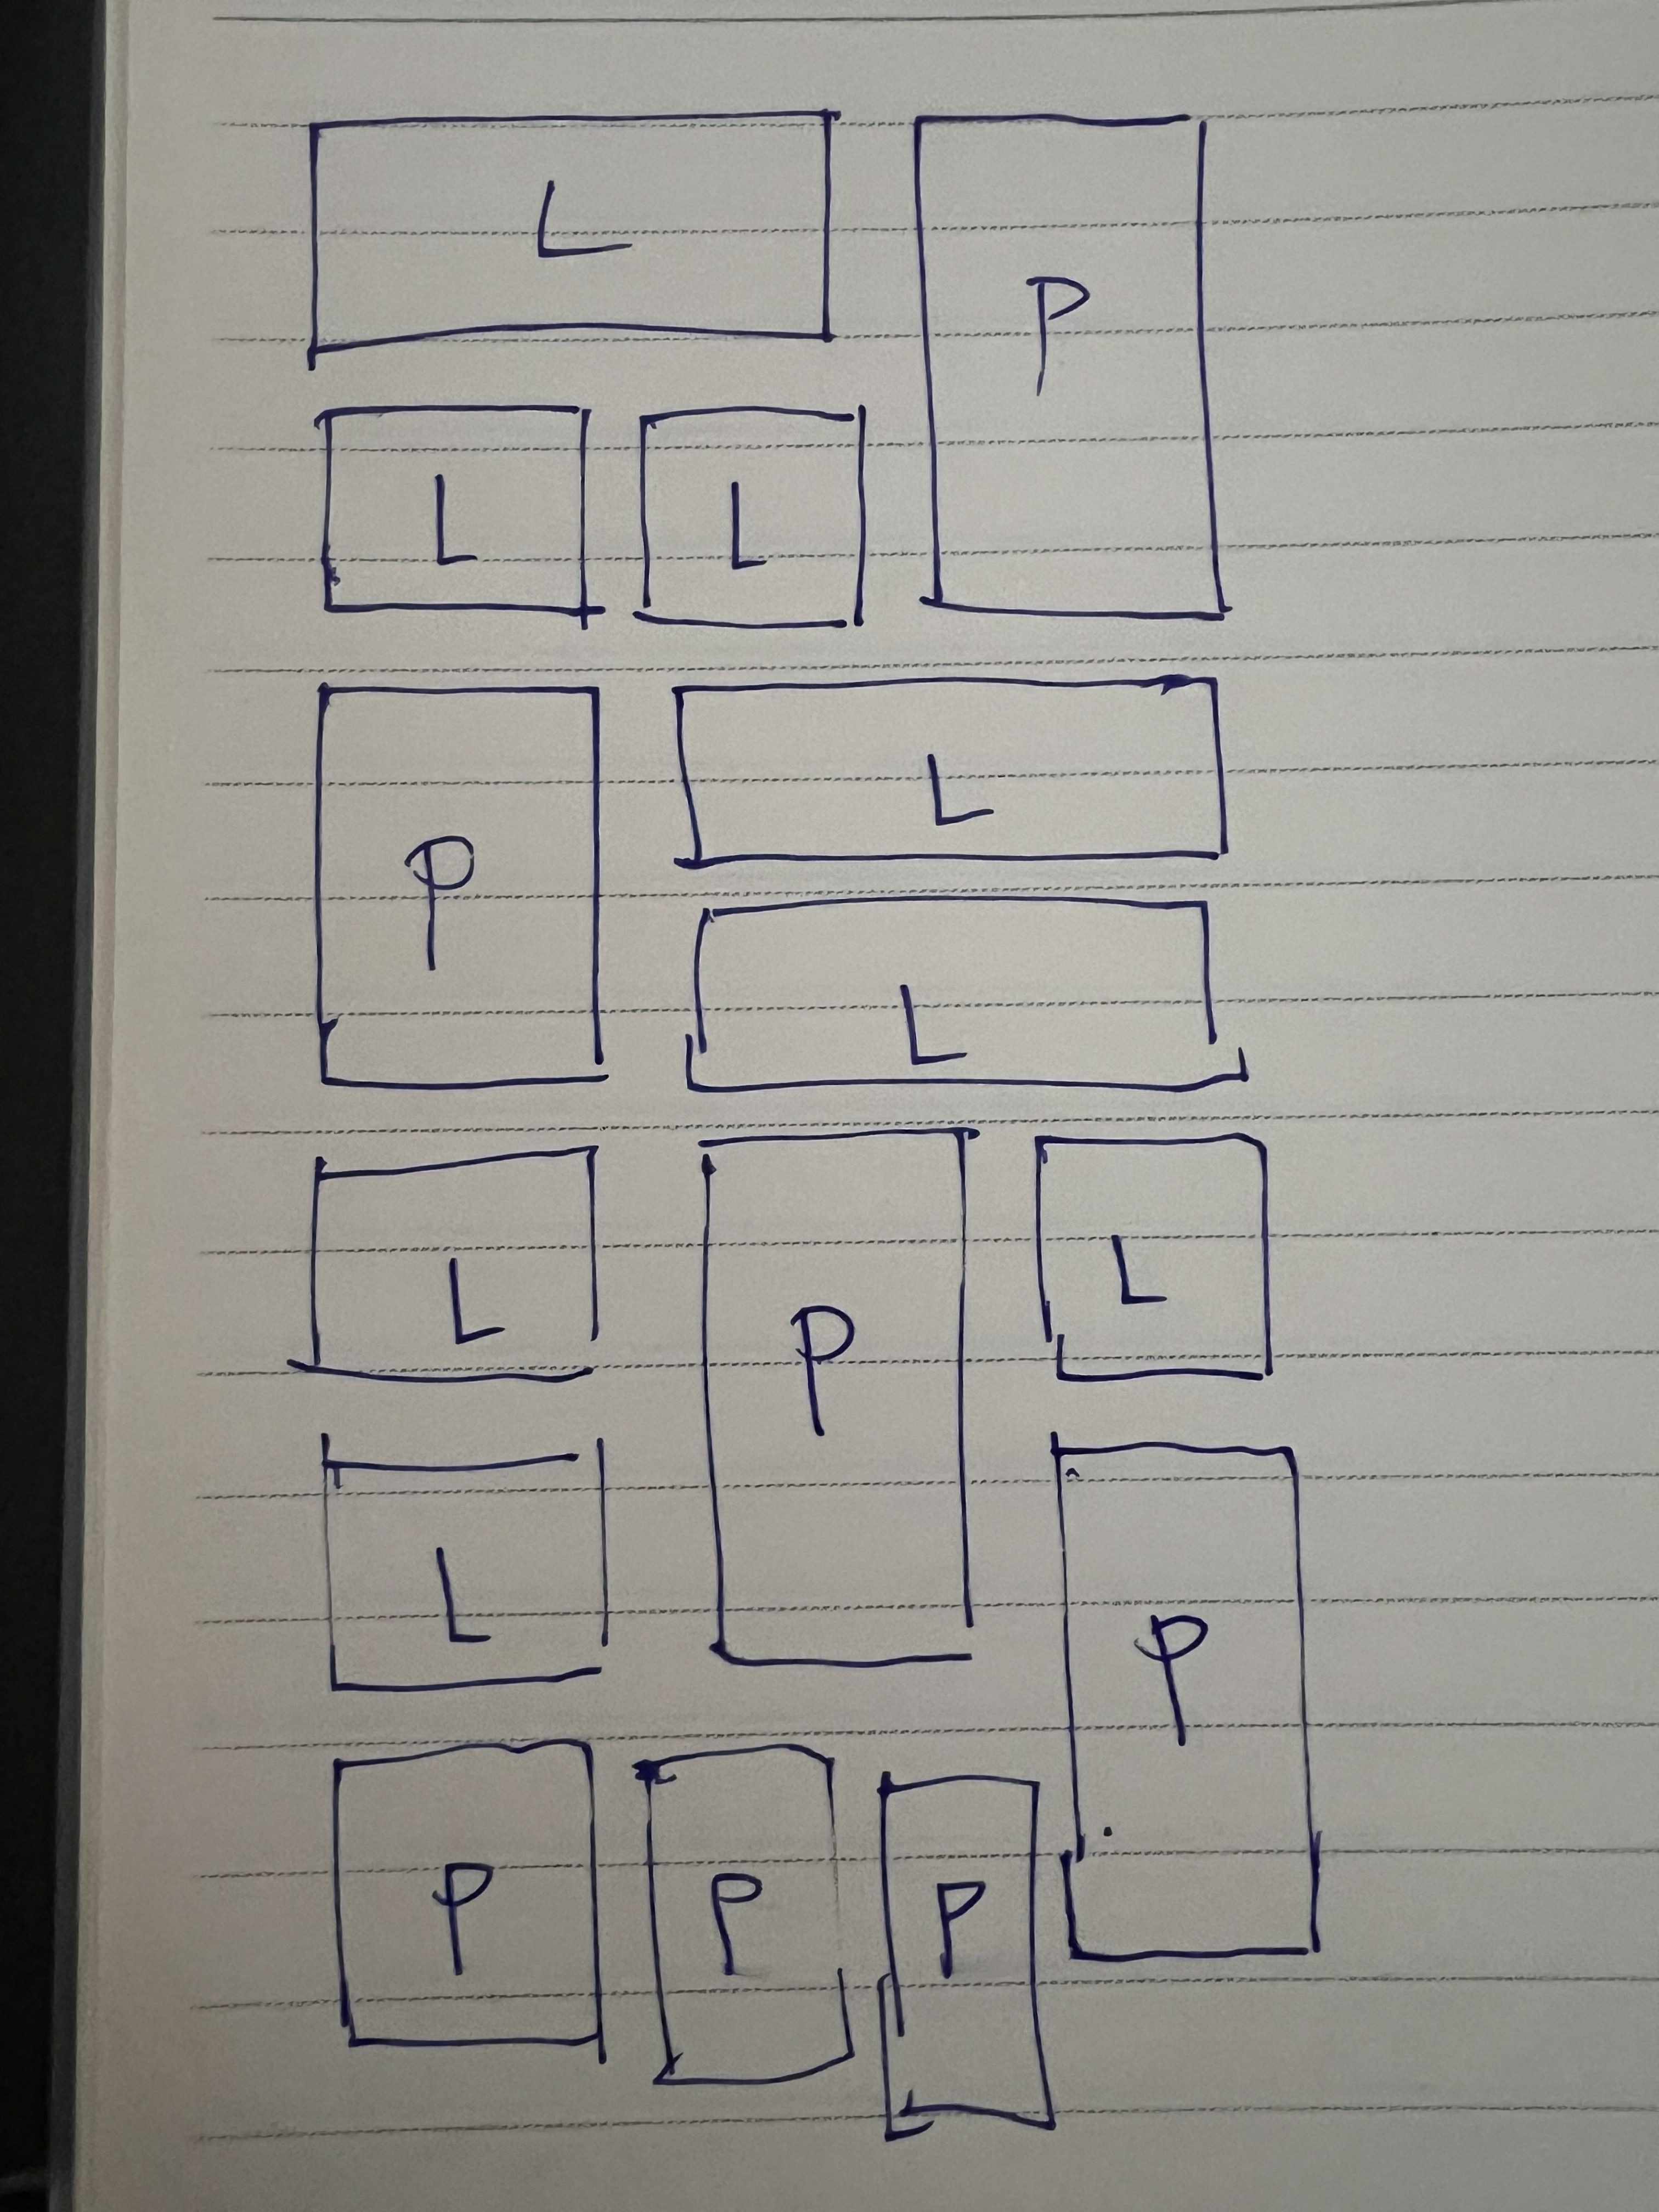 L P
L L
P L
L
L P L
L P
P P P